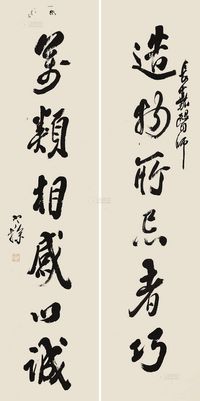 長嘉醫師
造物所忌者巧
萬類相感以誠